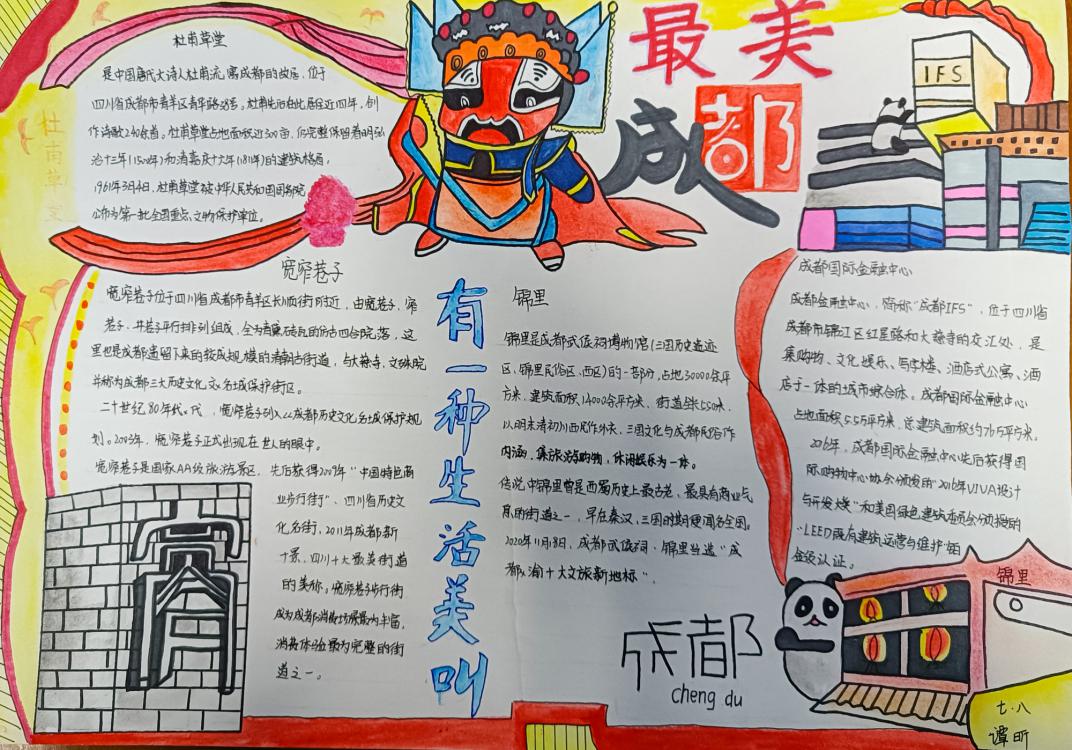 最美
成都
IFS
杜甫草堂
杜甫草堂
是中国唐代大诗人杜甫流寓成都的故居，位于
四川省成都市青羊区青华路38号。杜甫先后在此居住近四年，创
作诗歌240余首。杜甫草堂占地面积近300亩，仍完整保留着明弘
治十三年(1500年)和清嘉庆十六年(1811年)的建筑格局，
1961年3月4日，杜甫草堂被中华人民共和国国务院
公布为第一批全国重点文物保护单位。
宽窄巷子
宽窄巷子位于四川省成都市青羊区长顺街附近，由宽巷子、窄
巷子、井巷子平行排列组成，全为青黛砖瓦的仿古四合院落，这
里也是成都遗留下来的较成规模的清朝古街道，与大慈寺、文殊院
并称为成都三大历史文化文名城保护街区。
二十世纪80年代，宽窄巷子列入《成都历史文化名城保护规
划》。2008年，宽窄巷子正式出现在世人的眼中。
宽窄巷子是国家AA级旅游景区，先后获得2009年“中国特色商
业步行街”、四川省历史文
化名街，2011年成都新
十景，四川十大最美街道
的美称。宽窄巷子步行街
成为成都消费场景最为丰富，
消费体验最为完整的街
道之一。
有一种生活美叫
锦里
锦里是成都武侯祠博物馆(三国历史遗迹
区、锦里民俗区、西区)的一部分，占地30000余平
方米，建筑面积14000余平方米，街道全长550米，
以明末清初川西民作外衣，三国文化与成都民俗作
内涵，集旅游购物，休闲娱乐为一体。
传说中锦里曾是西蜀历史上最古老、最具有商业气
息的街道之一，早在秦汉、三国时期便闻名全国。
2020年11月18日，成都武侯祠·锦里当选“成
都、渝十大文旅新地标”。
成都国际金融中心
成都金融中心，简称“成都IFS”，位于四川省
成都市锦江区红星路和大慈寺的交汇处，是
集购物、文化娱乐、写字楼、酒店式公寓、酒
店于一体的城市综合体。成都国际金融中心
占地面积5.5万平方米，总建筑面积约76万平方米。
2016年，成都国际金融中心先后获得国
际购物中心协会颁发的“2016年VIVA设计
与开发奖”和美国绿色建筑委员会颁授的
“LEED既有建筑运营与维护”铂
金级认证。
成都
cheng du
锦里
七·八
谭昕